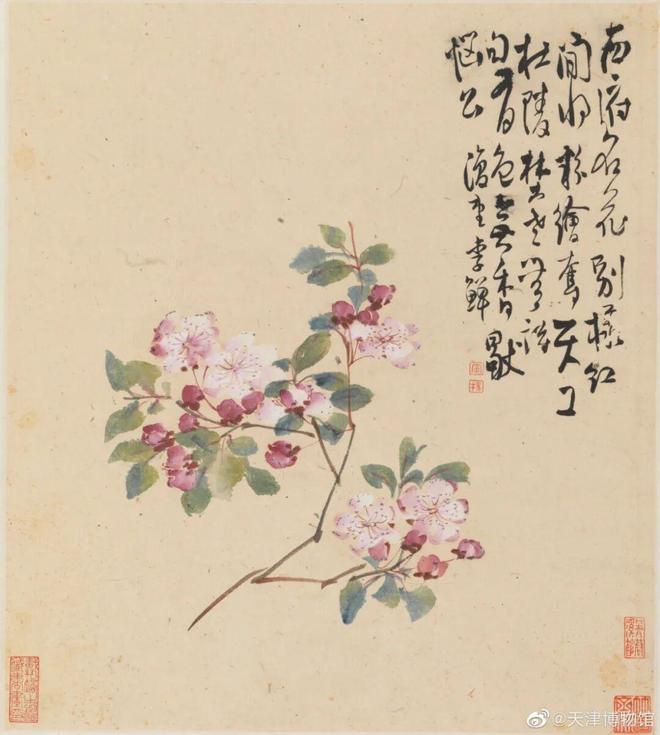 西府名花別樣紅
閒将粉繪奪天工
杜陵埜老無詩
句有色無香獻
惱公 復堂李鱓
@天津博物馆